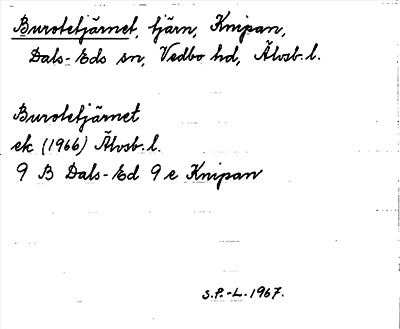 Burotetjärnet, tjärn, Knipan,
Dals-Eds sn, Vedbo hd, Älvsb. l.
Burotetjärnet
ek (1966) Älvsb. l.
9 B Dals-Ed 9 e Knipan
S.P.-L. 1967.